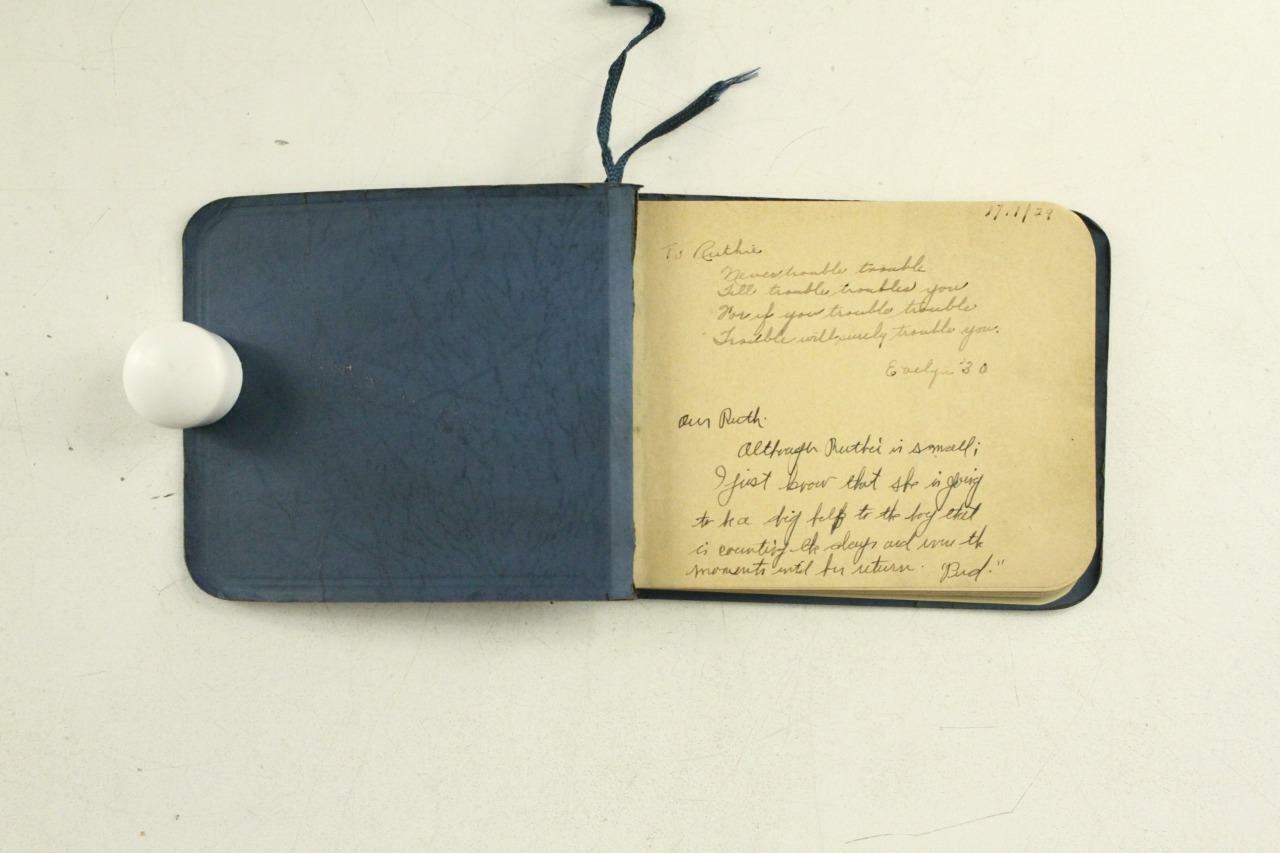 To Ruthie
Never trouble trouble
Till trouble troubles you
For if you trouble trouble
Trouble will surely trouble you.
Evelyn '30
Our Ruth.
Although Ruthie is small;
I just know that she is going
to be a big help to the boy that
is counting the days and even the
moments until her return. "Bud."